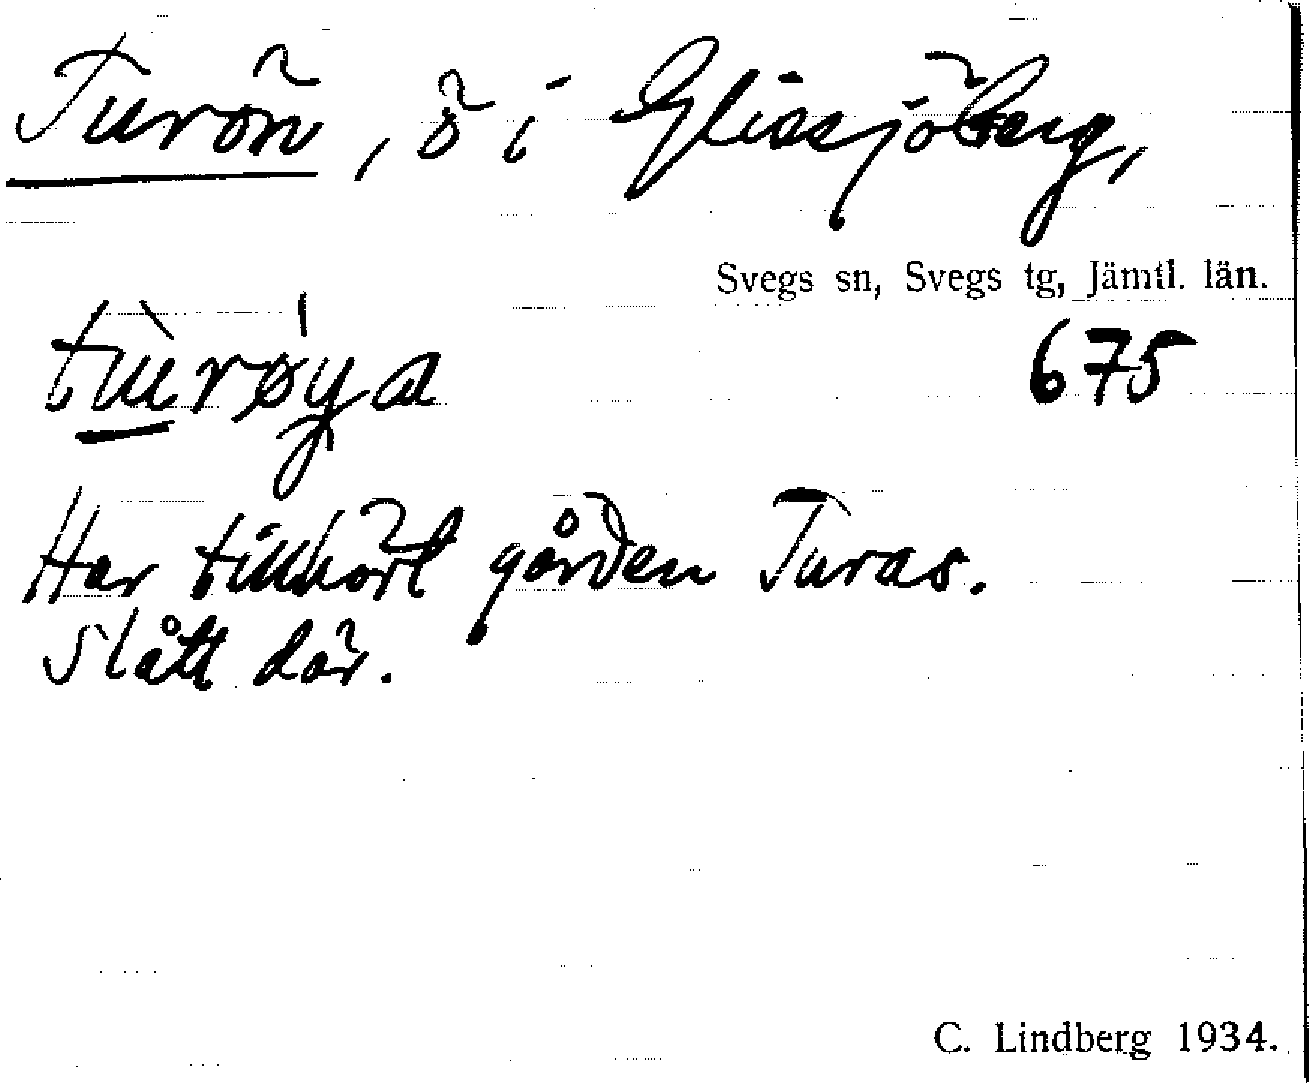 Turön, ö i Glissjöberg,
Svegs sn, Svegs tg, Jämtl. län.
tùrøya
675
Har tillhört gården Turas.
Slått där.
C. Lindberg 1934.